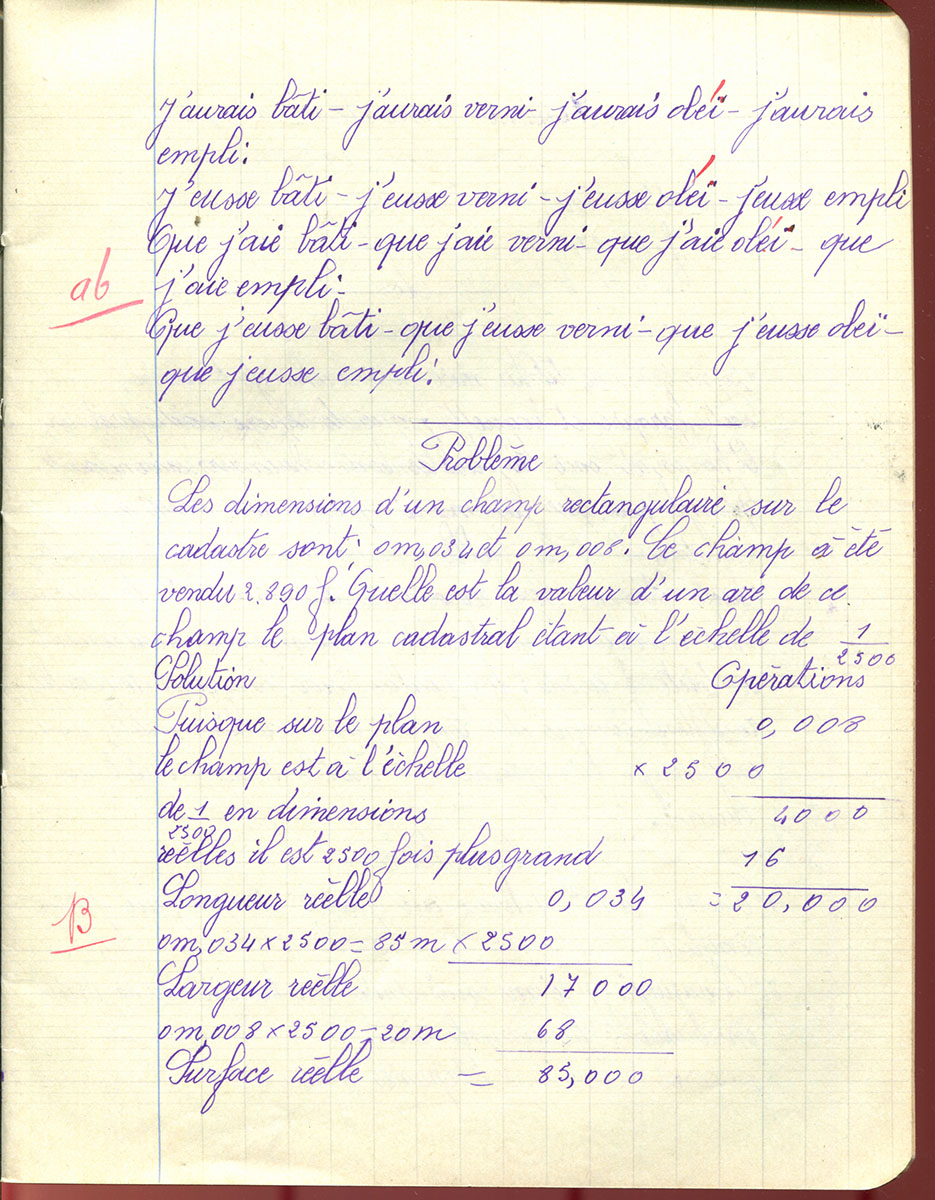 J'aurais bâti - j'aurais verni - j'aurais obéi - j'aurais
empli.
J'eusse bâti - j'eusse verni - j'eusse obéi - j'eusse empli
Que j'aie bâti - que j'aie verni - que j'aie obéi - que
j'aie empli -
ab
Que j'eusse bâti - que j'eusse verni - que j'eusse obeï -
que j'eusse empli.
Problême
Les dimensions d'un champ rectangulaire sur le
cadastre sont: 0m,034 et 0m,008. Ce champ a été
vendu 2.890 f. Quelle est la valeur d'un are de ce
champ le plan cadastral étant à l'échelle de 1/2500
Solution Opérations
Puisque sur le plan 0,008
le champ est à l'échelle × 2500
de 1/2500 en dimensions 4000
réelles il est 2500 fois plus grand 16
Longueur réelle 0,034 = 20,000
B
0m,034 × 2500 = 85m × 2500
Largeur réelle 17000
0m,008 × 2500 = 20m 68
Surface réelle = 85,000